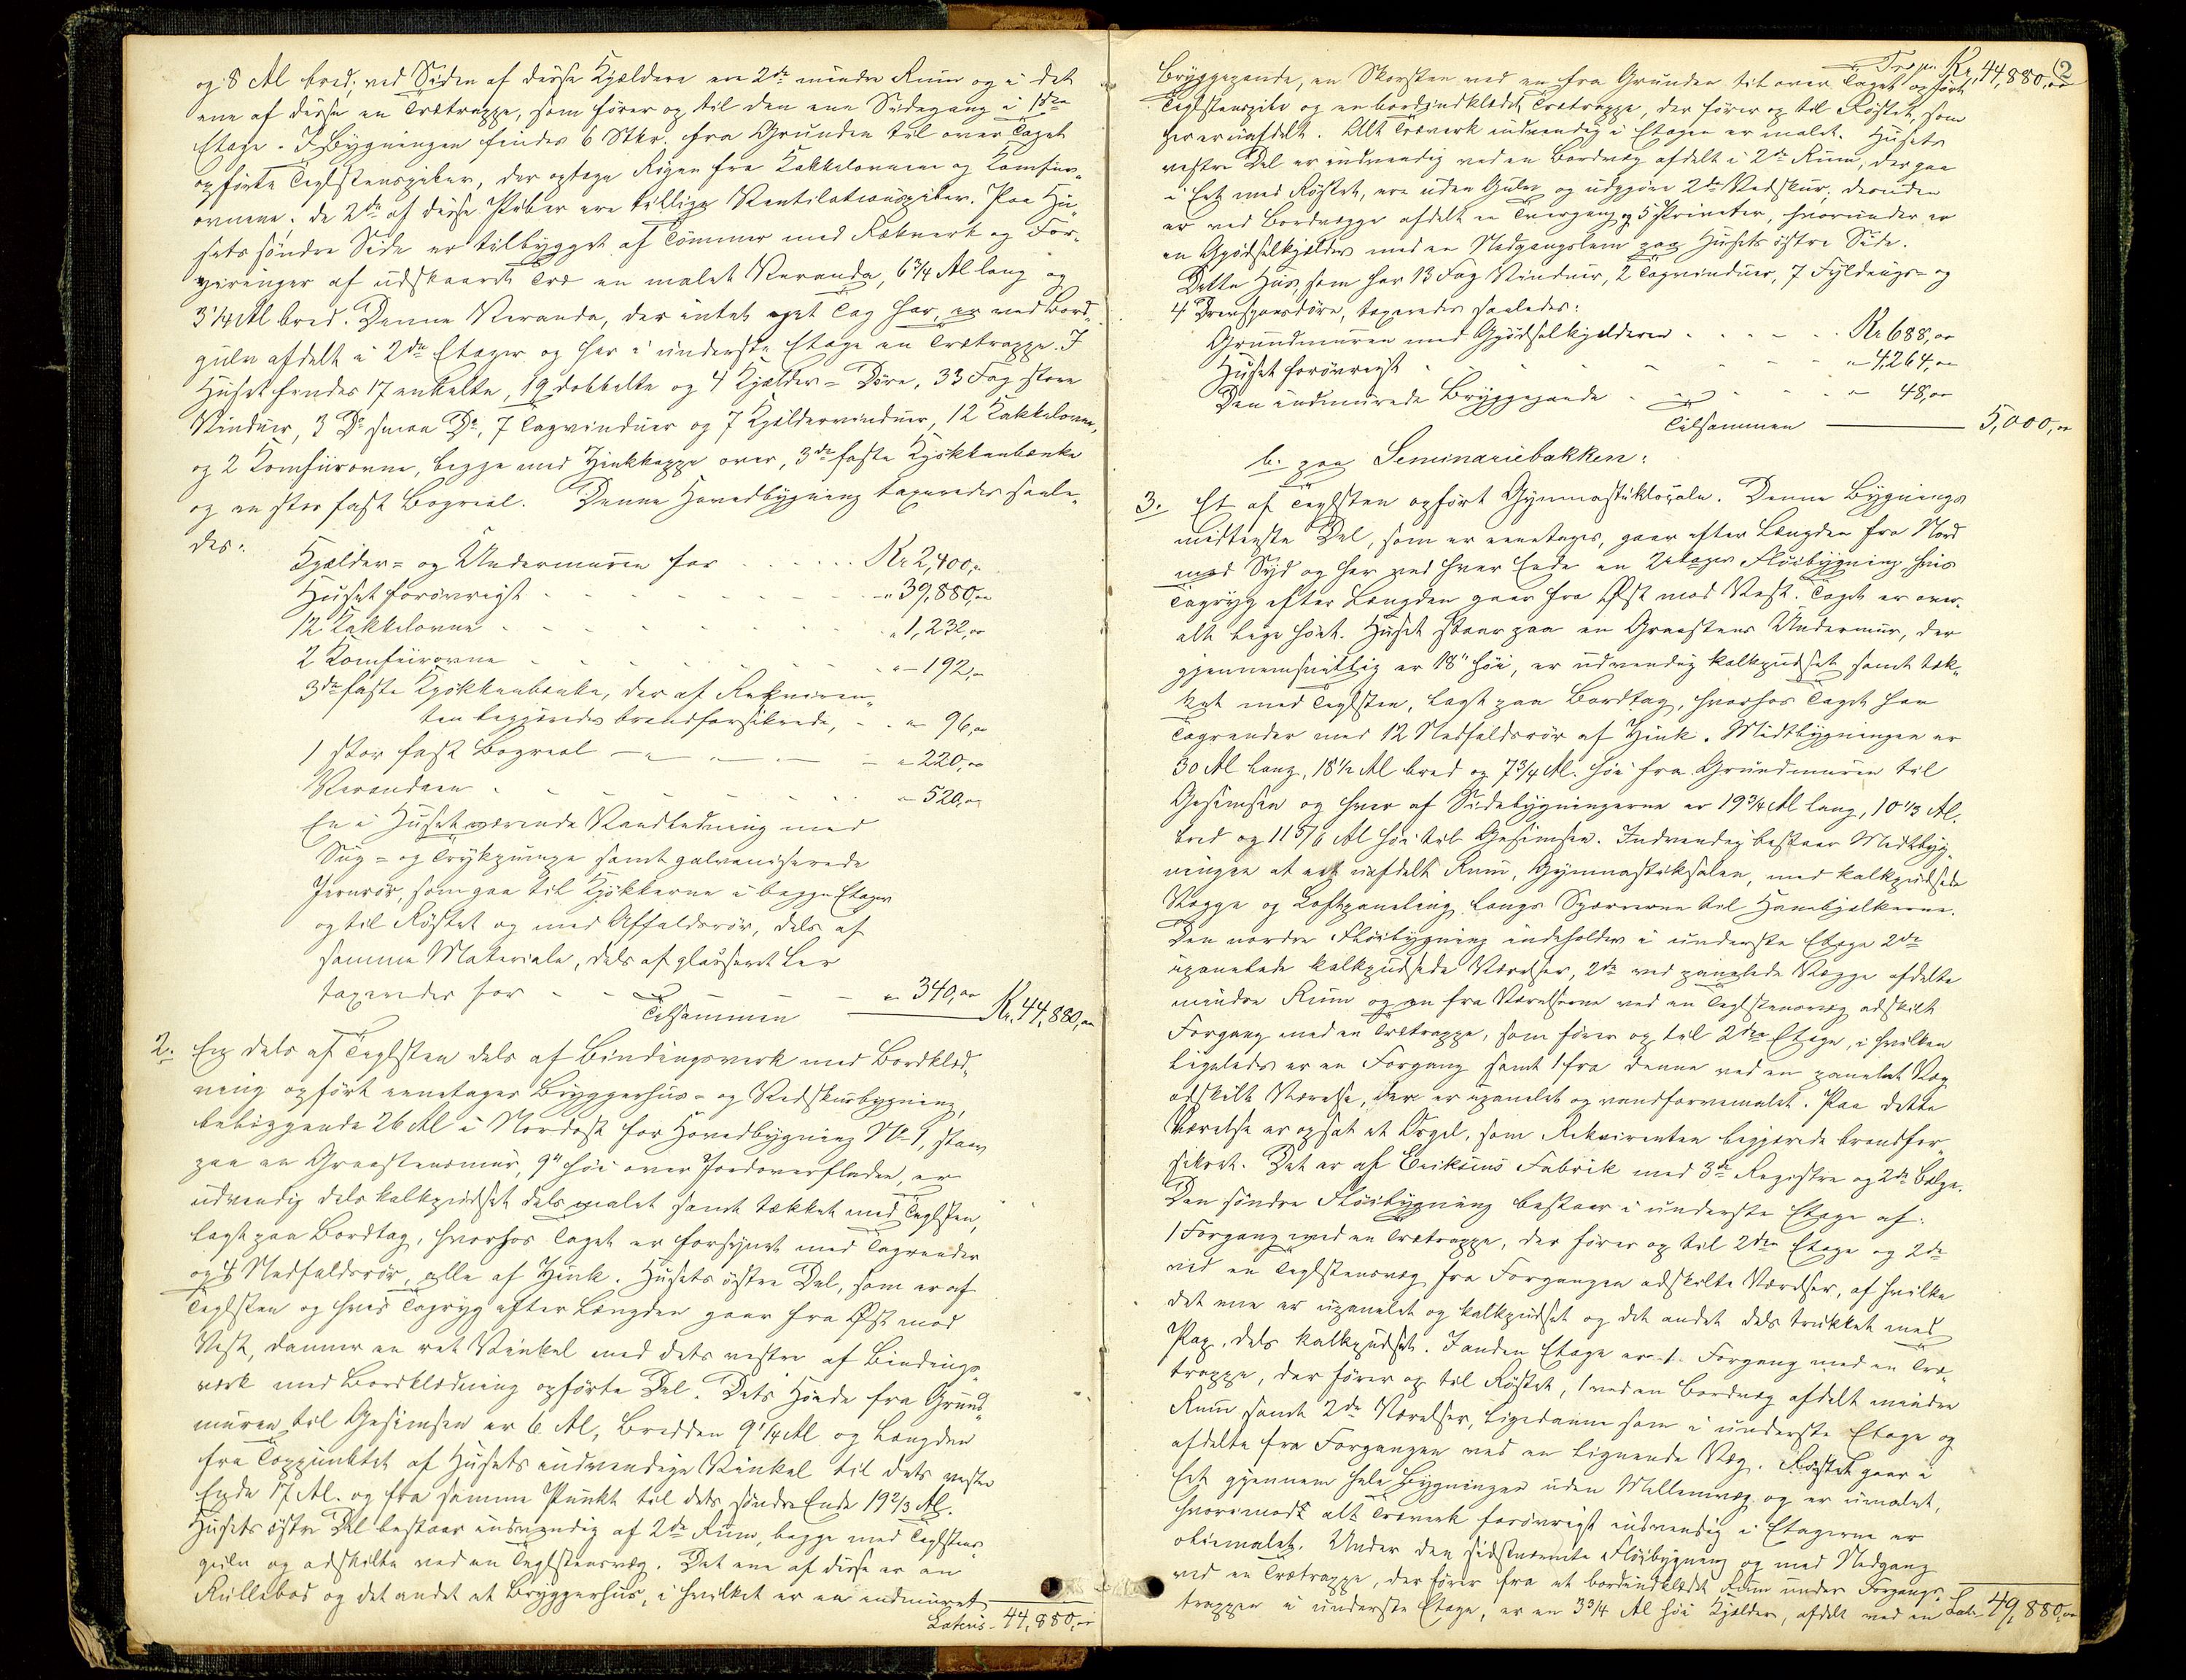 og 8 Al bred; ved Siden af disse Kjældere ere 2de mindre Rum og i det
ene af disse en Trætrappe, som fører op til den ene Sidegang i 1ste
Etage. I Bygningen findes 6 Stkr. fra Grunden til over Taget
opførte Teglstenspiber, der optage Rögen fra Kakkelovnene og Komfur-
ovnene; de 2de af disse Piber ere tillige Ventilationspiber. Paa Hu-
sets söndre Side er tilbygget af Tömmer med Rækverk og For-
ziringer af udskaaret Træ en malet Veranda, 6 3/4 Al lang og
3 1/4 Al bred. Denne Veranda, der intet eget Tag har, er ved Bord-
gulv afdelt i 2de Etager og har i underste Etage en Trætrappe. I
Huset findes 17 enkelte, 19 dobbelte og 4 Kjælder-Döre, 33 Fag store
Vinduer, 3 Do smaa Do, 7 Tagvinduer og 7 Kjældervinduer, 12 Kakkelovne,
og 2 Komfurovne, begge med Zinkkappe over, 3de faste Kjökkenbænke
og en stor fast Bogreol. Denne Hovedbygning taxeredes saale-
des:
Kjælder- og Undermuren for . . . . . . Kr. 2,400,"
Huset forövrigt - - - - - " 39,880,00
12 Kakkelovne - - - - - " 1,232,00
2 Komfurovne - - - - - " 192,00
3de faste Kjökkenbænke, der af Rekviren-
ten begjæredes brandforsikrede, - - " 96,00
1 stor fast Bogreol - " - " - - " 220,00
Verandaen - - - - - " 520,00
En i Huset værende Vandledning med
Sug- og Trykpumpe samt galvaniserede
Jernrör, som gaa til Kjökkerne i begge Etager
og til Röstet og med Affaldsrör, dels af
samme Materiale, dels af glaseret Ler
taxeredes for - - - - " 340,00
Tilsammen Kr. 44,880,00
2. En dels af Teglsten dels af Bindingsverk med Bordklæd-
ning opfört enetages Bryggerhus- og Vedskurbygning,
beliggende 26 Al i Nordost for Hovedbygning No 1, staar
paa en Graastensmur, 9" höi over Jordoverfladen, er
udvendig dels kalkpudset dels malet samt tækket med Teglsten,
lagt paa Bordtag, hvorhos Taget er forsynet med Tagrender
og 4 Nedfaldsrör, alle af Zink. Husets östre Del, som er af
Teglsten og hvis Tagryg efter Længden gaar fra Öst mod
Vest, danner en ret Vinkel med dets vestre af Bindings-
verk med Bordklædning opförte Del. Dets Höide fra Grund-
muren til Gesimsen er 6 Al, Bredden 9 1/4 Al og Længden
fra Toppunktet af Husets udvendige Vinkel til dets vestre
Ende 17 Al. og fra samme Punkt til dets söndre Ende 19 2/3 Al.
Husets östre Del bestaar indvendig af 2de Rum, begge med Teglstens-
gulv og adskilte ved en Teglstensvæg. Det ene af disse er en
Rullebod og det andet et Bryggerhus, i hvilket er en indmuret
Lateris - 44,880,00
Trsp. Kr. 44,880,00 2
Bryggepande, en Skorsten med en fra Grunden til over Taget opfört
Teglstenspibe og en bordindklædt Trætrappe, der förer op til Röstet, som
her er uafdelt. Alt Træverk indvendig i Etagen er malet. Husets
vestre Del er indvendig ved en Bordvæg afdelt i 2de Rum, der gaa
i Eet med Röstet, ere uden Gulv og udgjöre 2de Vedskur; desuden
er ved Bordvægge afdelt en Tvergang og 5 Priveter, hvorunder er
en Gjödselkjælder med en Nedgangslem paa Husets östre Side.
Dette Hus, som har 13 Fag Vinduer, 2 Tagvinduer, 7 Fyldings- og
4 Drengspansdöre, taxeredes saaledes:
Grundmuren med Gjödselkjælderen - - - Kr. 688,00
Huset forövrigt - - - - - " 4,264,00
Den indmurede Bryggepande - - - - " 48,00
Tilsammen 5,000,00
b. paa Seminariebakken:
3. Et af Teglsten opfört Gymnastiklocale. Denne Bygnings
midterste Del, som er eenetages, gaar efter Længden fra Nord
mod Syd og har ved hver Ende en 2etages Flöibygning, hvis
Tagryg efter Længden gaar fra Öst mod Vest. Taget er over-
alt lige höit. Huset staar paa en Graastens Undermur, der
gjennemsnitlig er 18" höi, er udvendig kalkpudset samt tæk-
ket med Teglsten, lagt paa Bordtag, hvorhos Taget har
Tagrender med 12 Nedfaldsrör af Zink. Midtbygningen er
30 Al lang, 18 1/2 Al bred og 7 3/4 Al. höi fra Grundmuren til
Gesimsen og hver af Sidebygningerne er 19 3/4 Al lang, 10 1/3 Al.
bred og 11 5/6 Al höi til Gesimsen. Indvendig bestaar Midtbyg-
ningen af eet uafdelt Rum, Gymnastiksalen, med kalkpudsede
Vægge og Loftpaneling langs Sperrerne til Hanebjelkerne.
Den nordre Flöibygning indeholder i underste Etage 2de
upanelede kalkpudsede Værelser, 2de ved panelede Vægge afdelte
mindre Rum og en fra Værelserne ved en Teglstensvæg adskilt
Forgang med en Trætrappe, som förer op til 2den Etage, i hvilken
ligeledes er en Forgang samt 1 fra denne ved en panelet Væg
adskilt Værelse, der er upanelet og vandfarvemalet. Paa dette
Værelse er opsat et Orgel, som Rekvirenten begjærede brandfor-
sikret. Det er af Eriksens Fabrik med 3de Registre og 2de Bælge.
Den söndre Flöibygning bestaar i underste Etage af:
1 Forgang med en Trætrappe, der förer op til 2den Etage og 2de
ved en Teglstensvæg fra Forgangen adskilte Værelser, af hvilke
det ene er upanelet og kalkpudset og det andet dels trukket med
Pap, dels kalkpudset. I anden Etage er 1 Forgang med en Træ-
trappe, der förer op til Röstet, 1 ved en Bordvæg afdelt mindre
Rum samt 2de Værelser, ligedanne som i underste Etage og
afdelte fra Forgangen ved en lignende Væg. Röstet gaar i
Eet gjennem hele Bygningen uden Mellemvæg og er umalet,
hvorimod alt Træverk forövrigt indvendig i Etagerne er
oliemalet. Under den sidstnævnte Flöibygning og med Nedgang
ved en Trætrappe, der förer fra et bordindklædt Rum under Forgangs-
trappen i underste Etage, er en 3 3/4 Al höi Kjælder, afdelt ved en Lat. 49,880,00